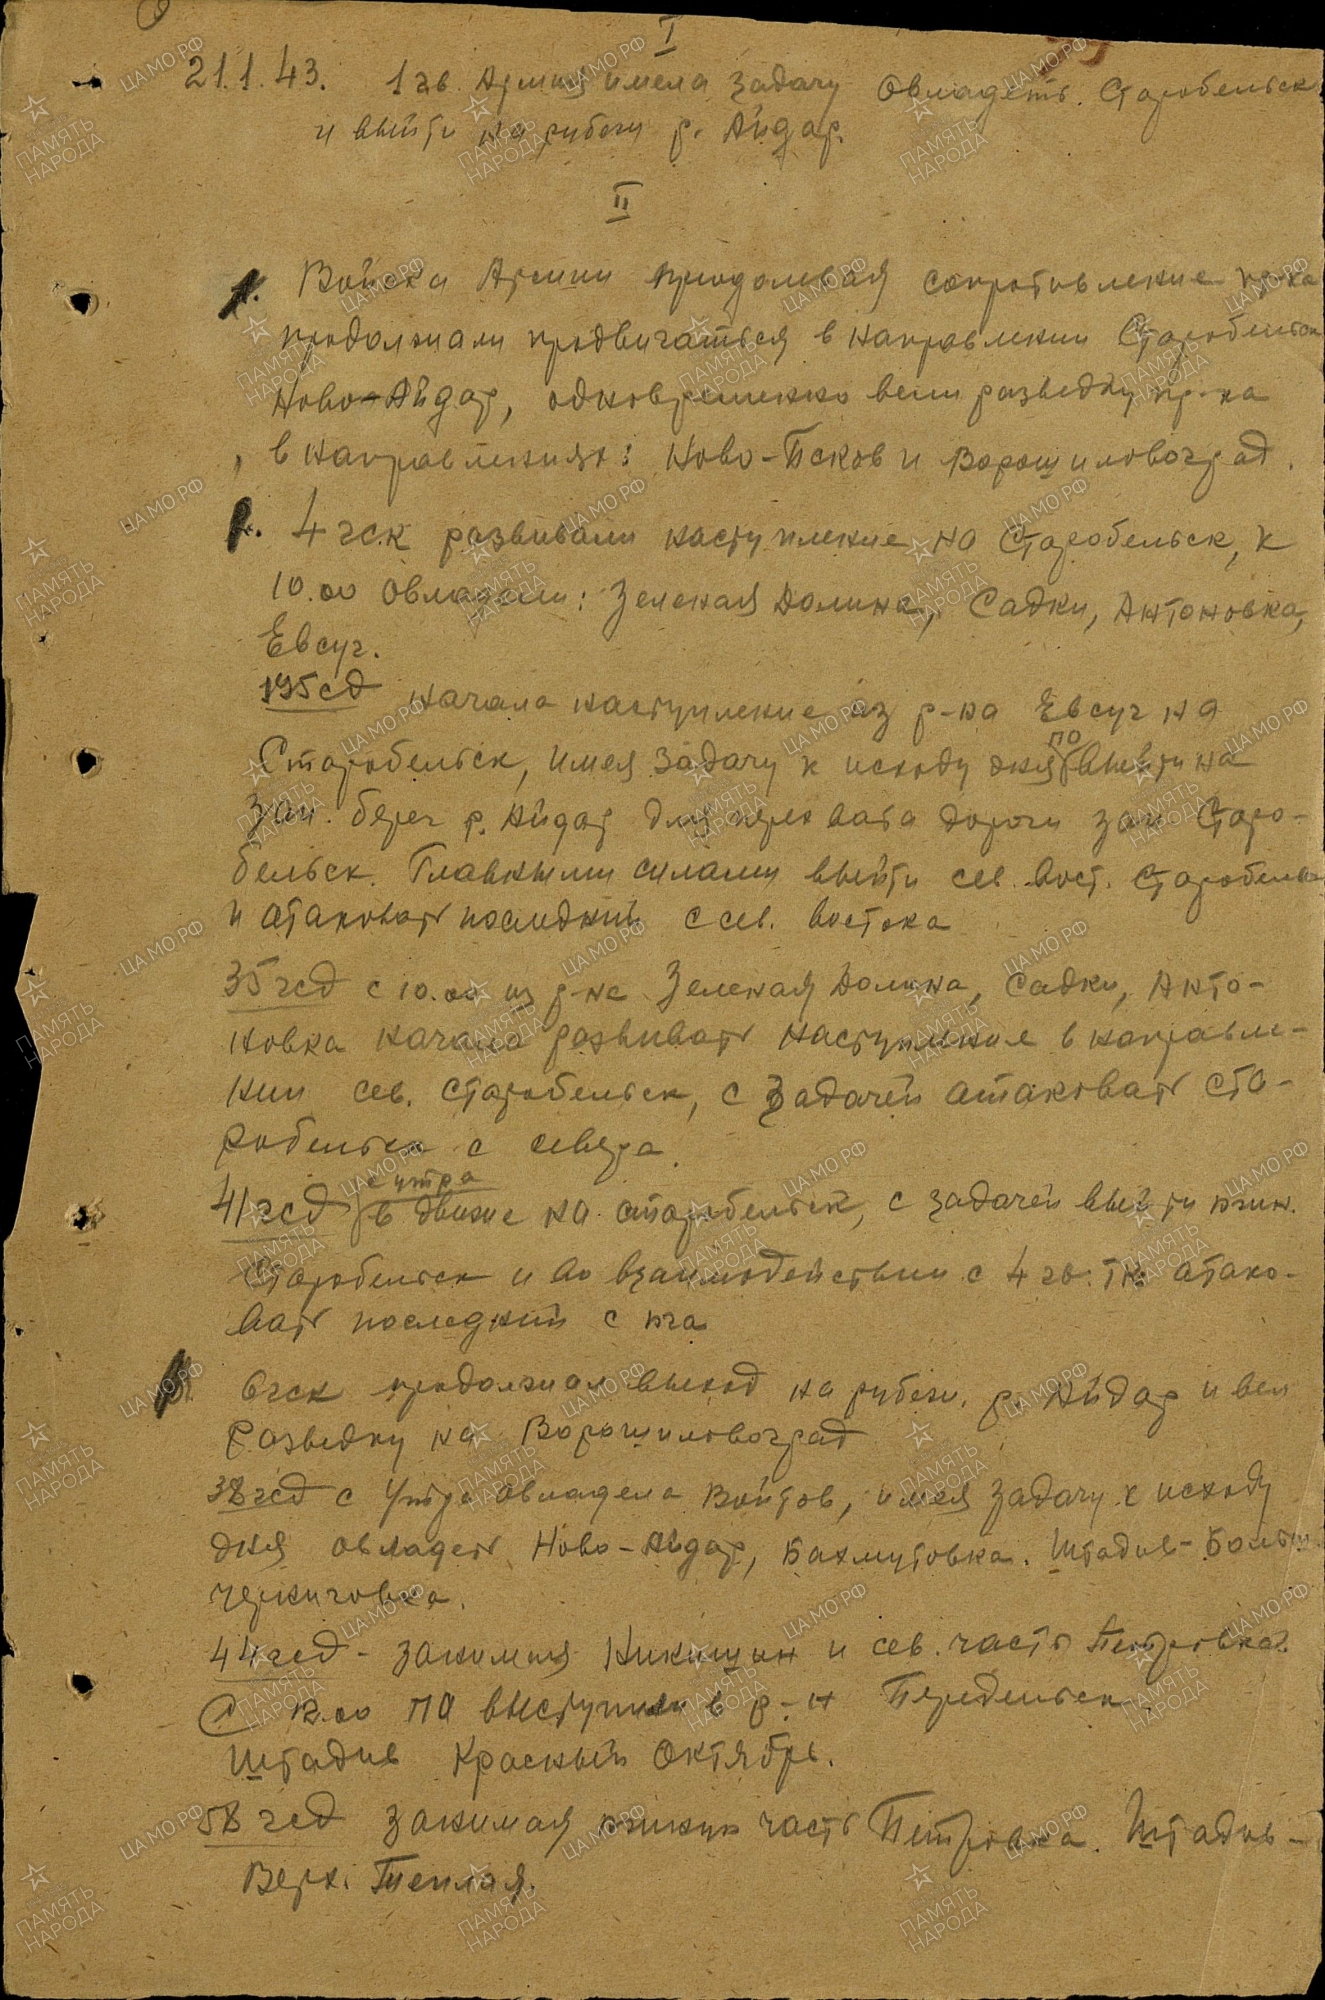 I
21.1.43. 1 гв. Армия имела задачу Овладеть Старобельск
и выйти на рубеж р. Айдар
II
1. Войска Армии преодолевая сопротивление пр-ка
продолжали продвигаться в направлении Старобельск
Ново-Айдар, одновременно вели разведку пр-ка
в направлениях: Ново-Псков и Ворошиловоград.
4 гск развивали наступление на Старобельск, к
10.00 овладели: Зеленая Долина, Садки, Антоновка,
Евсуг.
195 сд начала наступление из р-на Евсуг на
Старобельск, имея задачу к исходу дня по выйти на
зап. берег р. Айдар для перехвата дороги зап Старо-
бельск. Главными силами выйти сев. вост. Старобельск
и атаковать последний с сев. востока
35 гсд с 10.00 из р-на Зеленая Долина, Садки, Анто-
новка начала развивать наступление в направле-
нии сев. Старобельск, с задачей атаковать Ста-
робельск с севера.
41 гсд с утра в движе на Старобельск, с задачей выйти южн.
Старобельск и во взаимодействии с 4 гв. тк атако-
вать последний с юга
6 гск продолжал выход на рубеж р. Айдар и вел
разведку на Ворошиловоград
38 гсд с утра овладела Войтов, имея задачу к исходу
дня овладеть Ново-Айдар, Бахмутовка. Штадив - Больш
Черниговка.
44 гсд - занимая Никишин и сев. часть Петровка.
С 12.00 ПО выступили в р-н Передельск.
Штадив Красный Октябрь.
58 гсд занимая южную часть Петровка. Штадив -
Верх. Теплая.
ПАМЯТЬ НАРОДА
ЦАМО РФ